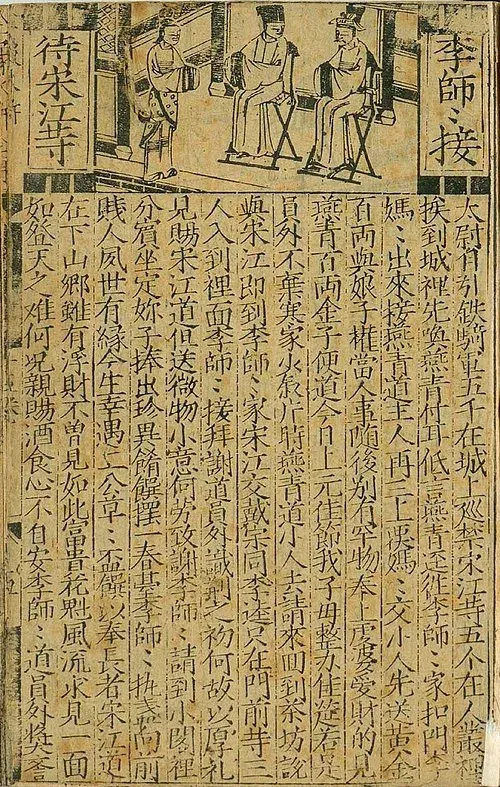 李師〻接
待宋江等
太尉自引鉄騎軍五千在城上廵禁宋江等五个在人叢裡
挨到城裡先喚燕青付耳低言燕青逕徃李師〻家扣門李
媽〻出來接燕青道主人再三上覆媽〻交小人先送黃金
百両與娘子權當人事随後别有罕物奉上虔婆愛財的見
燕青百両金子便道今日上元佳節我子母整办佳筵若是
員外不棄寒家少叙片時燕青道小人去請來回到茶坊說
與宋江即到李師〻家宋江交戴宗同李逵只在門前等三
人入到裡面李師〻接拜謝道員外識荆之初何故以厚礼
見賜宋江道但送微物小意何勞致謝李師〻請到小閣裡
分賔坐定妳子捧出珍異餚饌摆一春䑓李師〻执盞向前
賤人夙世有縁今生幸遇二公草〻盃饌以奉長者宋江道
在下山鄉雖有浮財不曽見如此富貴花魁風流求見一面
如登天之难何况親賜酒食心不自安李師〻道員外獎誉